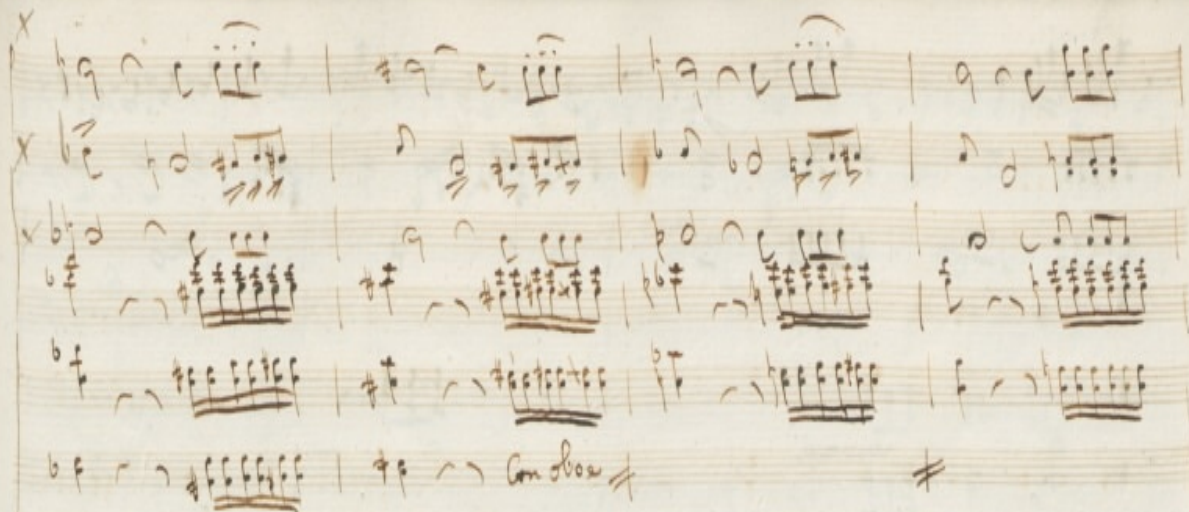 Con oboe